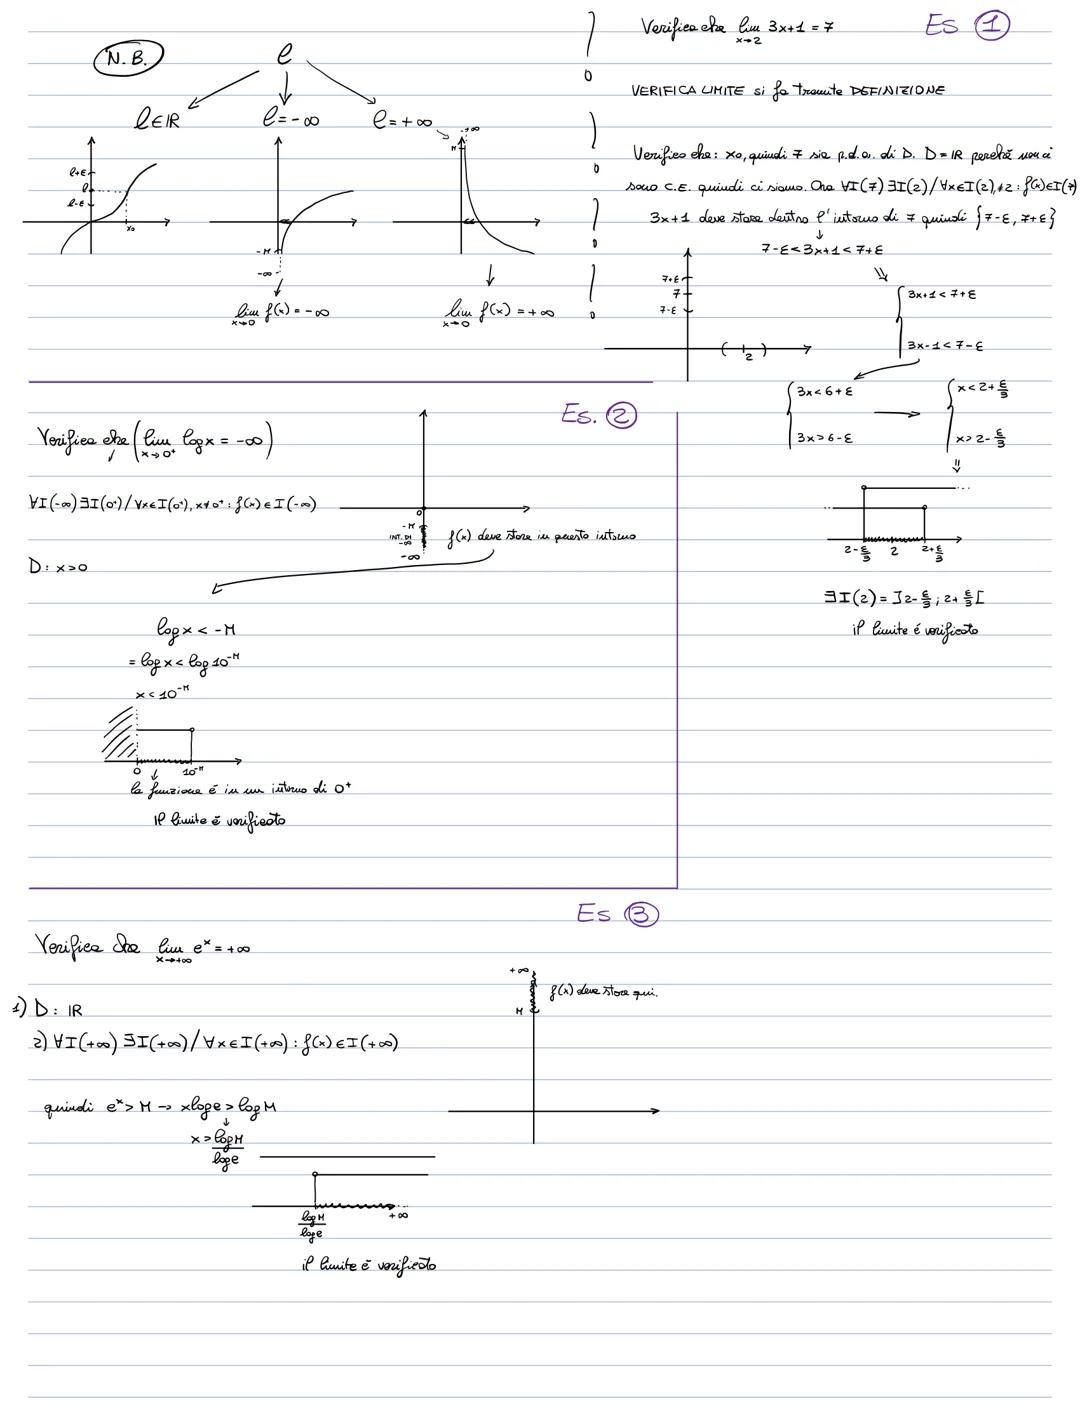 N.B.
l
l∈ℝ
l=-∞
l=+∞
l+ε
l
l-ε
x₀
-M
-∞
+∞
M
lim f(x) = -∞
x→0
lim f(x) = +∞
x→0
Es ①
Verifica che lim 3x+1 = 7
x→2
VERIFICA LIMITE si fa tramite DEFINIZIONE
Verifico che: x₀, quindi 7 sia p.d.a. di D. D=ℝ perché non ci
sono C.E. quindi ci siamo. Ora ∀I(7) ∃I(2)/∀x∈I(2),≠2: f(x)∈I(7)
3x+1 deve stare dentro l'intorno di 7 quindi {7-ε, 7+ε}
7-ε<3x+1<7+ε
7+ε
7
7-ε
2
3x+1<7+ε
3x-1<7-ε
3x<6+ε
3x>6-ε
x<2+ε/3
x>2-ε/3
2-ε/3 2 2+ε/3
∃I(2)=]2-ε/3; 2+ε/3[
il limite é verificato
Es. ②
Verifica che (lim log x = -∞)
x→0⁺
∀I(-∞)∃I(0⁺)/∀x∈I(0⁺), x≠0⁺: f(x)∈I(-∞)
0
-M
INT. DI
-∞
-∞
f(x) deve stare in questo intorno
D: x>0
log x < -M
= log x < log 10⁻ᴹ
x < 10⁻ᴹ
0 10⁻ᴹ
la funzione é in un intorno di 0⁺
Il limite é verificato
Es ③
Verifica che lim eˣ = +∞
x→+∞
+∞
f(x) deve stare qui.
M
1) D: ℝ
2) ∀I(+∞) ∃I(+∞)/∀x∈I(+∞): f(x)∈I(+∞)
quindi eˣ> M → x log e > log M
x > log M
log e
log M
log e
+∞
il limite é verificato